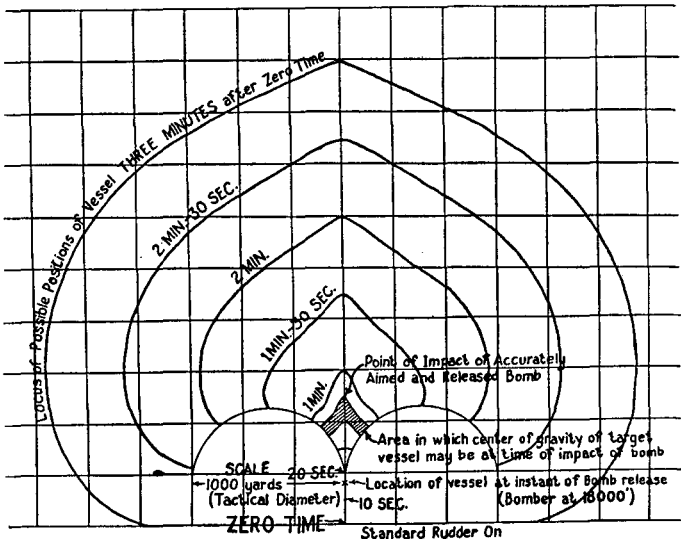 Locus of Possible Positions of Vessel THREE MINUTES after Zero Time
2-MIN.-30 SEC.
2 MIN.
1 MIN.-30 SEC.
1 MIN.
Point of Impact of Accurately
Aimed and Released Bomb
Area in which center of gravity of target
vessel may be at time of impact of bomb
SCALE
1000 yards
(Tactical Diameter)
20 SEC.
Location of vessel at instant of Bomb release
(Bomber at 18000')
10 SEC.
ZERO TIME
Standard Rudder On